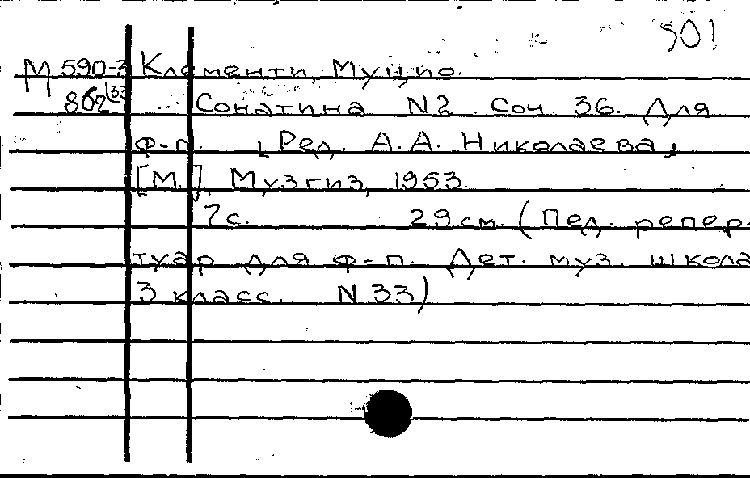 501
М 590-3 Клементи, Муцио.
862 Сонатина N2. Соч. 36. Для
ф-п. [Ред. А.А. Николаева]
[М.], Музгиз, 1953.
7с. 29 см. (Пед. репер-
туар для ф-п. Дет. муз. школа
3 класс. N 33)